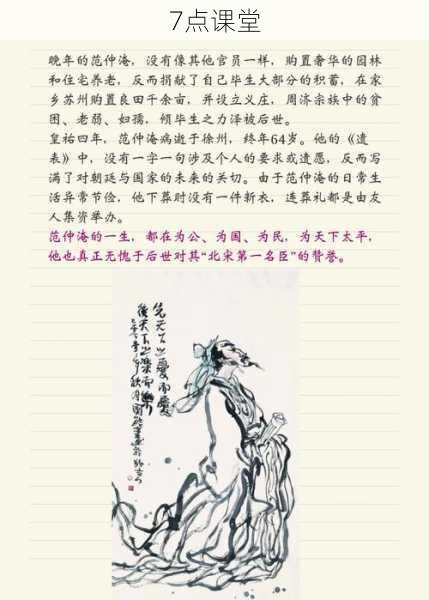 7点课堂
晚年的范仲淹，没有像其他官员一样，购置奢华的园林
和住宅养老，反而捐献了自己毕生大部分的积蓄，在家
乡苏州购置良田千余亩，并设立义庄，周济宗族中的贫
困、老弱、妇孺，倾毕生之力泽被后世。
皇祐四年，范仲淹病逝于徐州，终年64岁。他的《遗
表》中，没有一字一句涉及个人的要求或遗愿，反而写
满了对朝廷与国家的未来的关切。由于范仲淹的日常生
活异常节俭，他下葬时没有一件新衣，连葬礼都是由友
人集资举办。
范仲淹的一生，都在为公、为国、为民，为天下太平，
他也真正无愧于后世对其“北宋第一名臣”的赞誉。
先天下之憂而憂
後天下之樂而樂